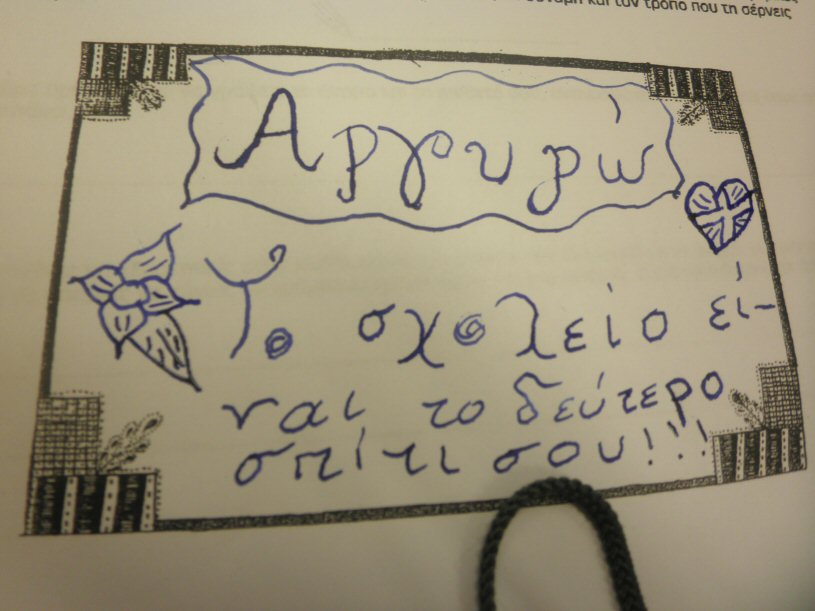 και τον τρόπο που τη σέρνεις
Αργυρώ
Το σχολείο εί-
ναι το δεύτερο
σπίτι σου!!!